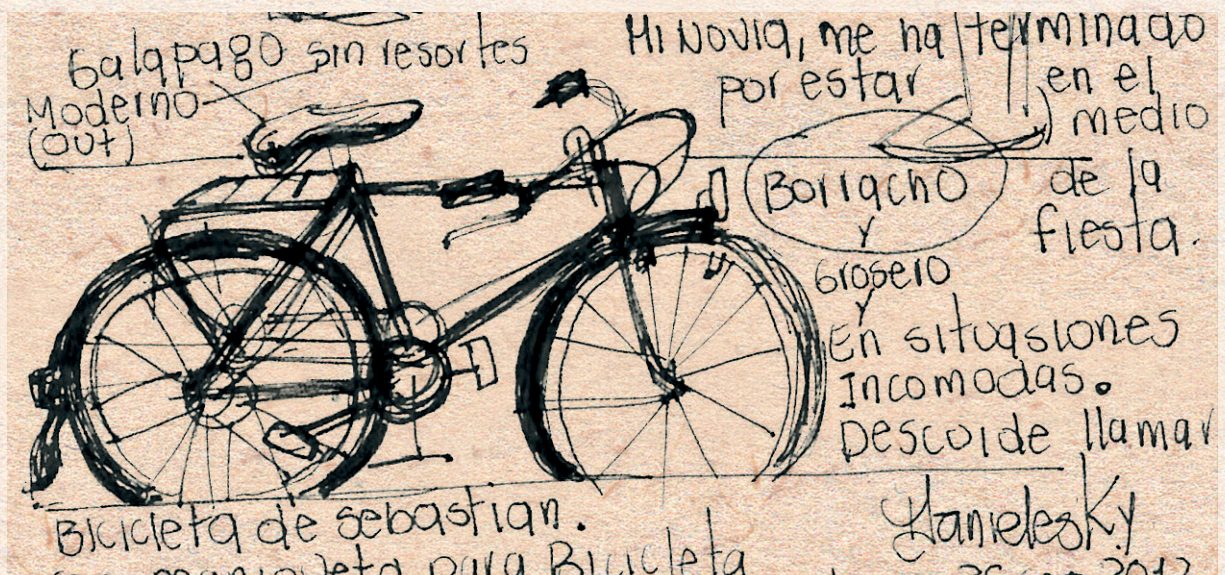 Galapago sin resortes
Moderno
(out)
Mi Novia, me ha terminado
por estar en el
medio
Borracho de la
y fiesta.
Grosero
y
En situasiones
Incomodas.
Descuide llamar
Bicicleta de sebastian.
para Bicicleta
2012